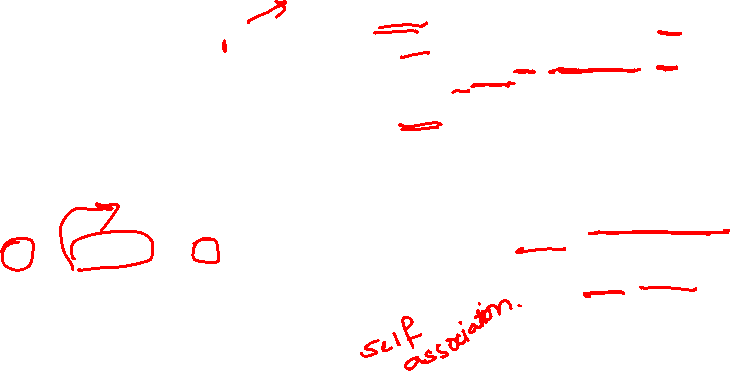 self
association.